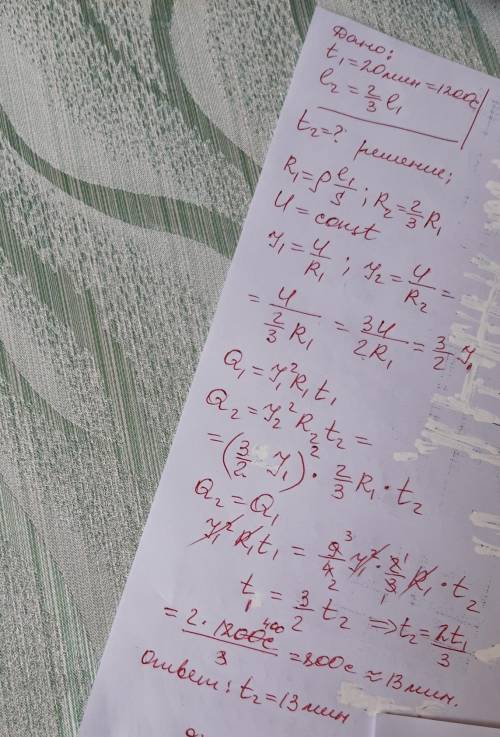 Дано:
t₁=20мин=1200с
l₂=2/3 l₁
t₂=? решение:
R₁=ρ l₁/S; R₂=2/3 R₁
U=const
I₁=U/R₁; I₂=U/R₂=
=U/(2/3 R₁)=3U/2R₁=3/2 I₁
Q₁=I₁²R₁t₁
Q₂=I₂²R₂t₂=
=(3/2 I₁)²·2/3 R₁·t₂
Q₂=Q₁
I₁²R₁t₁=9/4 I₁²·2/3 R₁·t₂
t₁=3/2 t₂ ⇒t₂=2t₁/3
=2·1200с/3=800с≈13мин.
Ответ: t₂=13мин